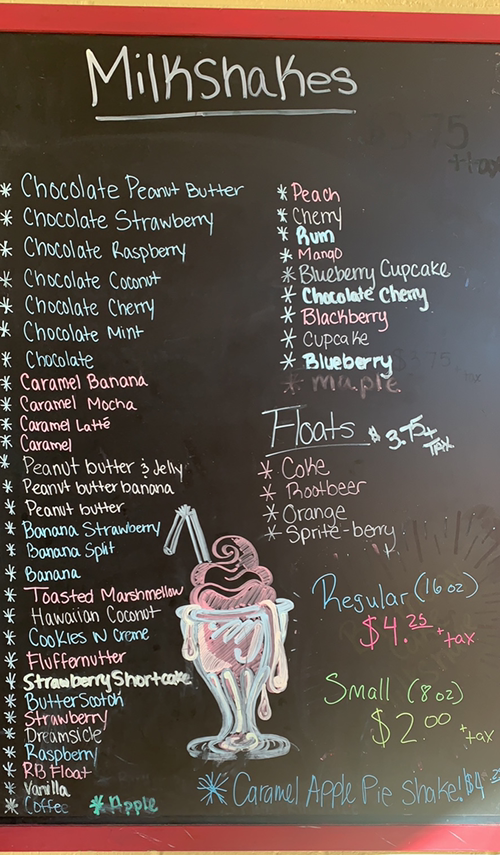 Milkshakes
* Chocolate Peanut Butter
* Chocolate Strawberry
* Chocolate Raspberry
* Chocolate Coconut
* Chocolate Cherry
* Chocolate Mint
* Chocolate
* Caramel Banana
* Caramel Mocha
* Caramel Latté
* Caramel
* Peanut butter & Jelly
* Peanut butter banana
* Peanut butter
* Banana Strawberry
* Banana Split
* Banana
* Toasted Marshmellow
* Hawaiian Coconut
* Cookies N Creme
* Fluffernutter
* Strawberry Shortcake
* ButterScotch
* Strawberry
* Dreamsicle
* Raspberry
* RB Float
* Vanilla
* Coffee * Apple
* Peach
* Cherry
* Rum
* Mango
* Blueberry Cupcake
* Chocolate Cherry
* Blackberry
* Cupcake
* Blueberry
* maple
Floats $3.75 + TAX
* Coke
* Rootbeer
* Orange
* Sprite-berry
Regular (16 oz)
$4.25 + tax
Small (8 oz)
$2.00 + tax
* Caramel Apple Pie Shake! $4